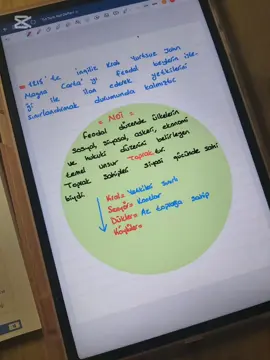 1215'te ingiliz Kralı Yurtsuz John
Magna Carta'yı feodal beylerin iste-
ği ile ilan ederek yetkilerini
sınırlandırmak durumunda kalmıştır.
= NOT =
Feodal düzende ülkelerin
sosyal, siyasal, askeri, ekonomi
ve hukuki düzenini belirleyen
temel unsur Toprak'tır.
Toprak sahipleri siyasi gücünde sahi
biydi.
Kral= Yetkileri sınırlı
Senyör= Kontlar
Dükler= Az toprağa sahip
Köylüler=